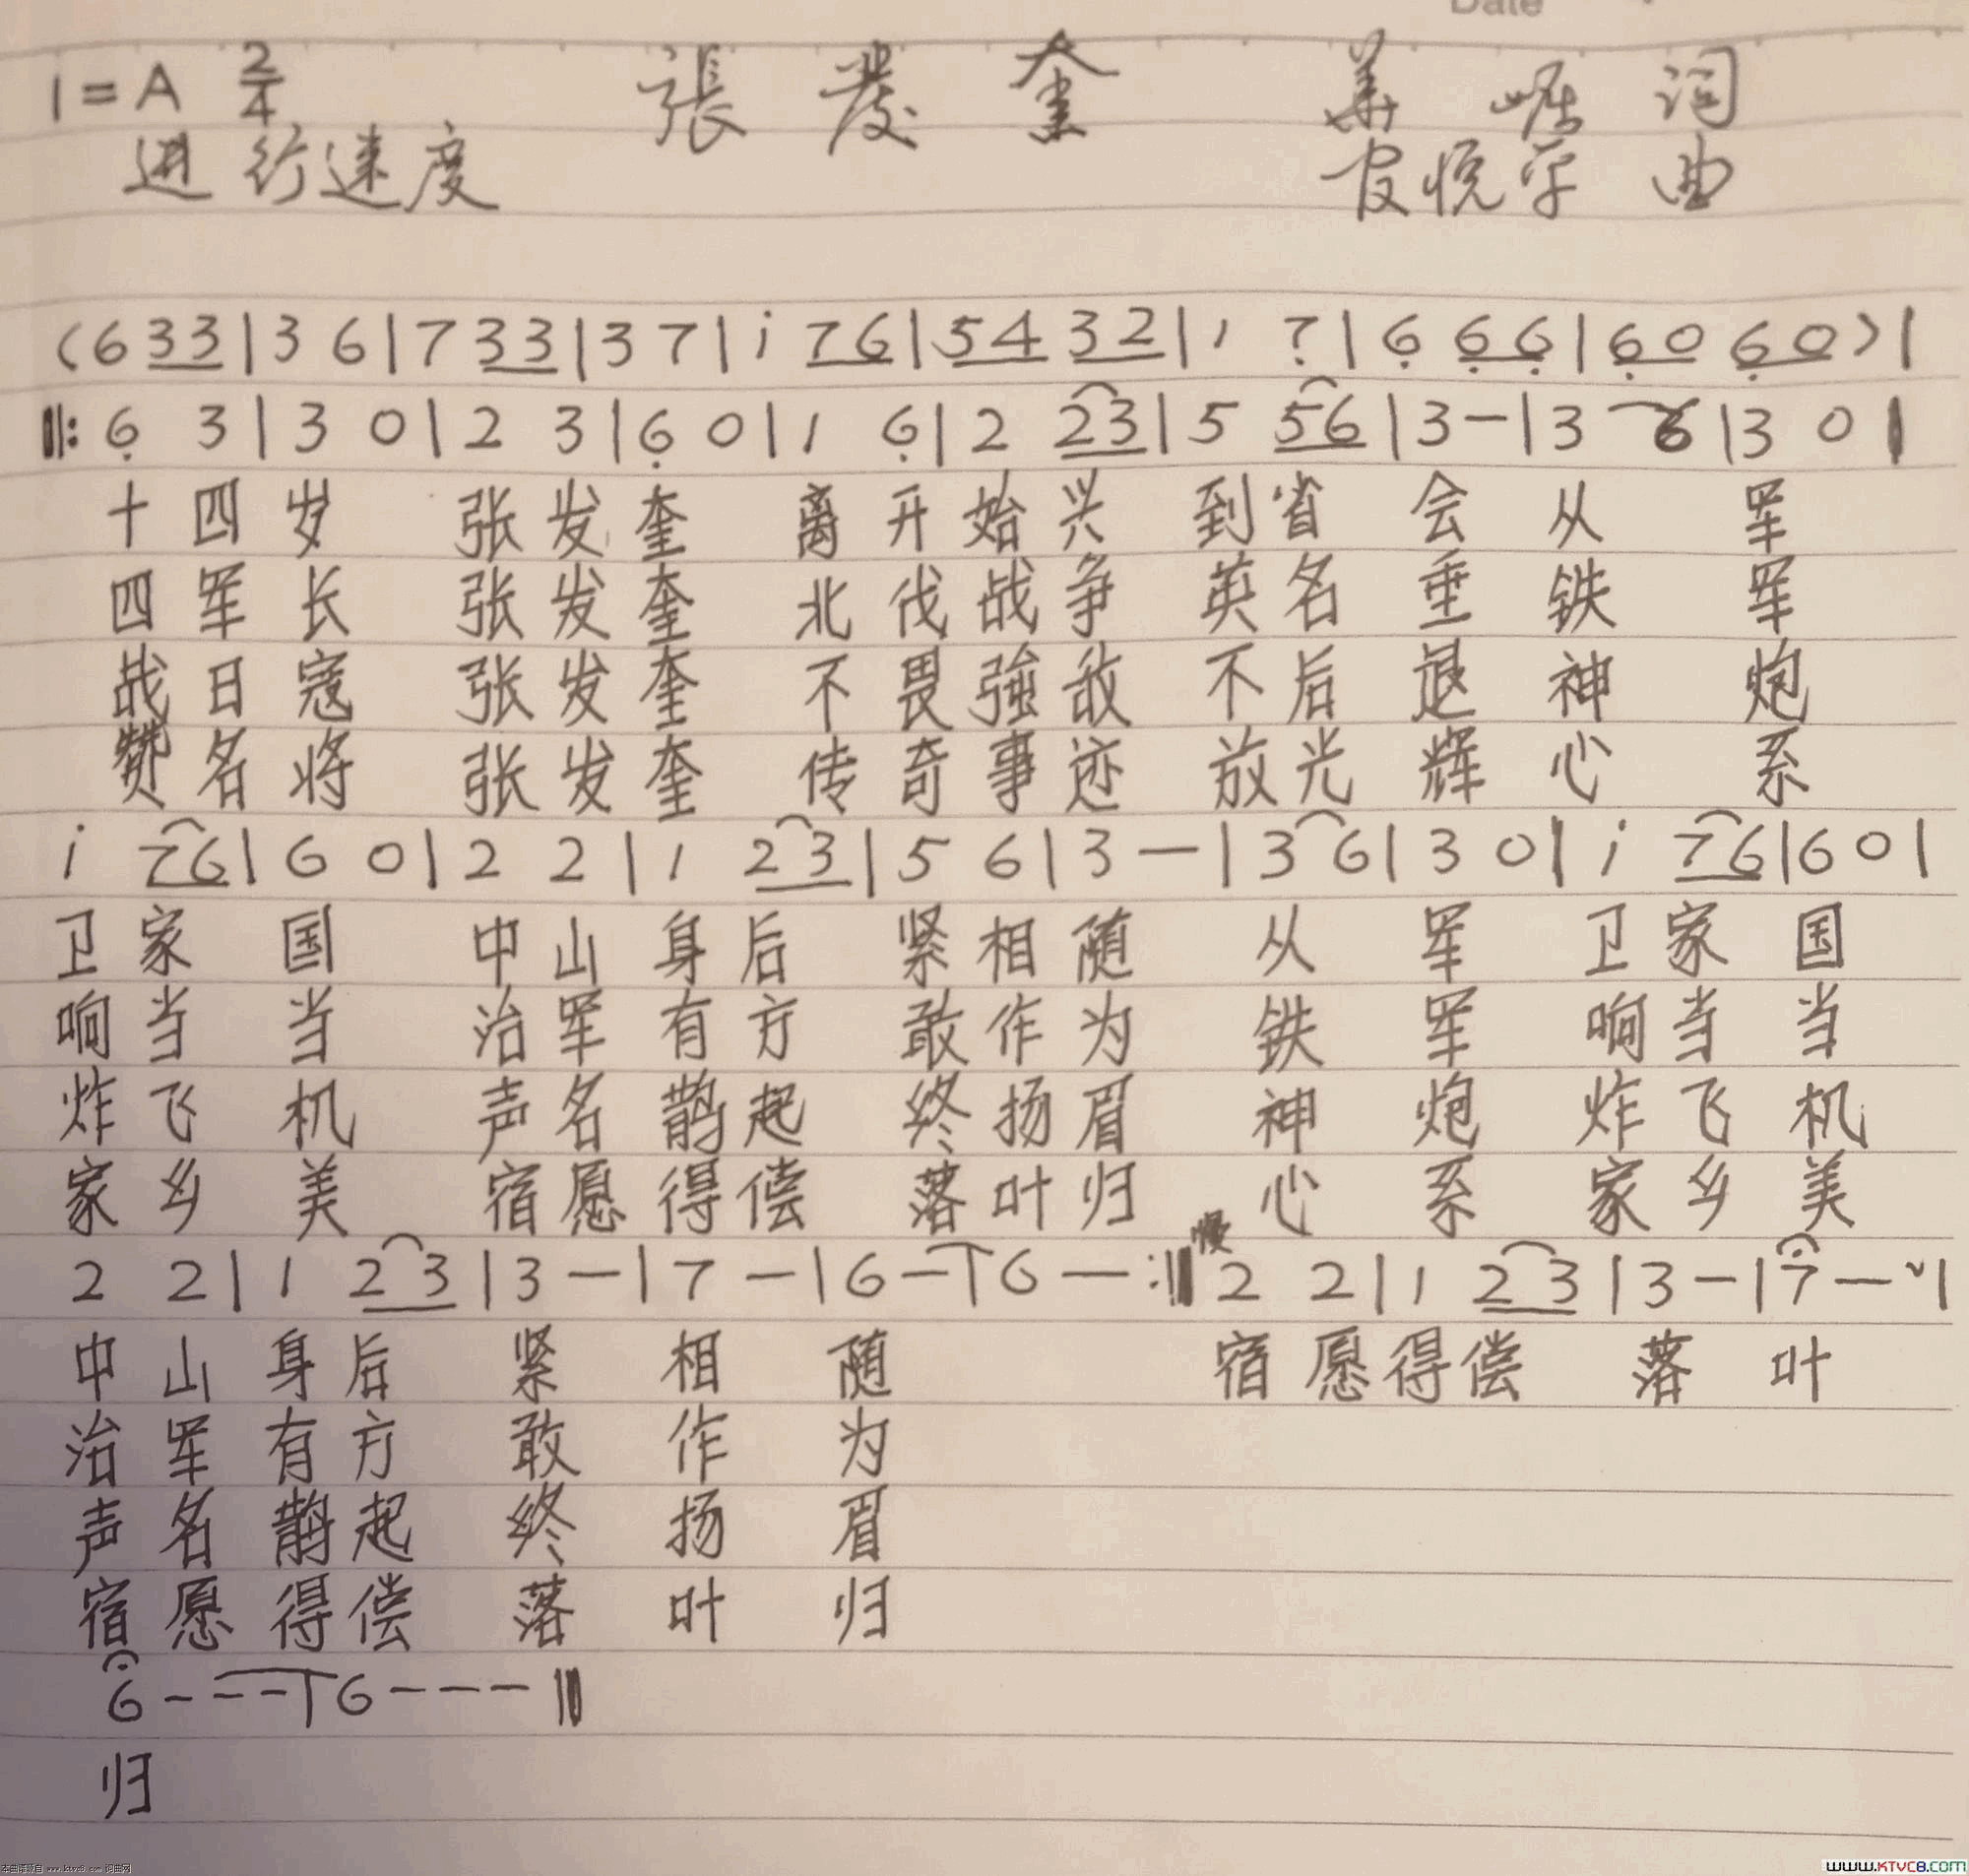 Date
1=A 2/4 張發奎 词
进行速度 曲
(6 33|3 6|7 33|37|i 76|54 32|1 7̣|6̣ 6̣6̣|6̣0 6̣0)|
‖: 6̣ 3|3 0|2 3|6̣ 0|1 6̣|2 23|5 56|3-|3 6|3 0|
十四岁 张发奎 离开始兴 到省会 从 军
四军长 张发奎 北伐战争 英名垂 铁 军
战日寇 张发奎 不畏强敌 不后退 神 炮
赞名将 张发奎 传奇事迹 放光辉 心 系
i 76|6 0|2 2|1 23|5 6|3 —|3 6|3 0|i 76|6 0|
卫家 国 中山身后 紧相随 从 军 卫家 国
响当 当 治军有方 敢作为 铁 军 响当 当
炸飞 机 声名鹊起 终扬眉 神 炮 炸飞 机
家乡 美 宿愿得偿 落叶归 心 系 家乡 美
慢
2 2|1 23|3 —|7 —|6 —|6 — :‖ 2 2|1 23|3 —|7 — ˅|
中山身后 紧 相 随 宿愿得偿 落 叶
治军有方 敢 作 为
声名鹊起 终 扬 眉
宿愿得偿 落 叶 归
6 - - -|6 - - - ‖
归
本曲谱源自 www.ktvc8.com 词曲网
WWW.KTVC8.COM